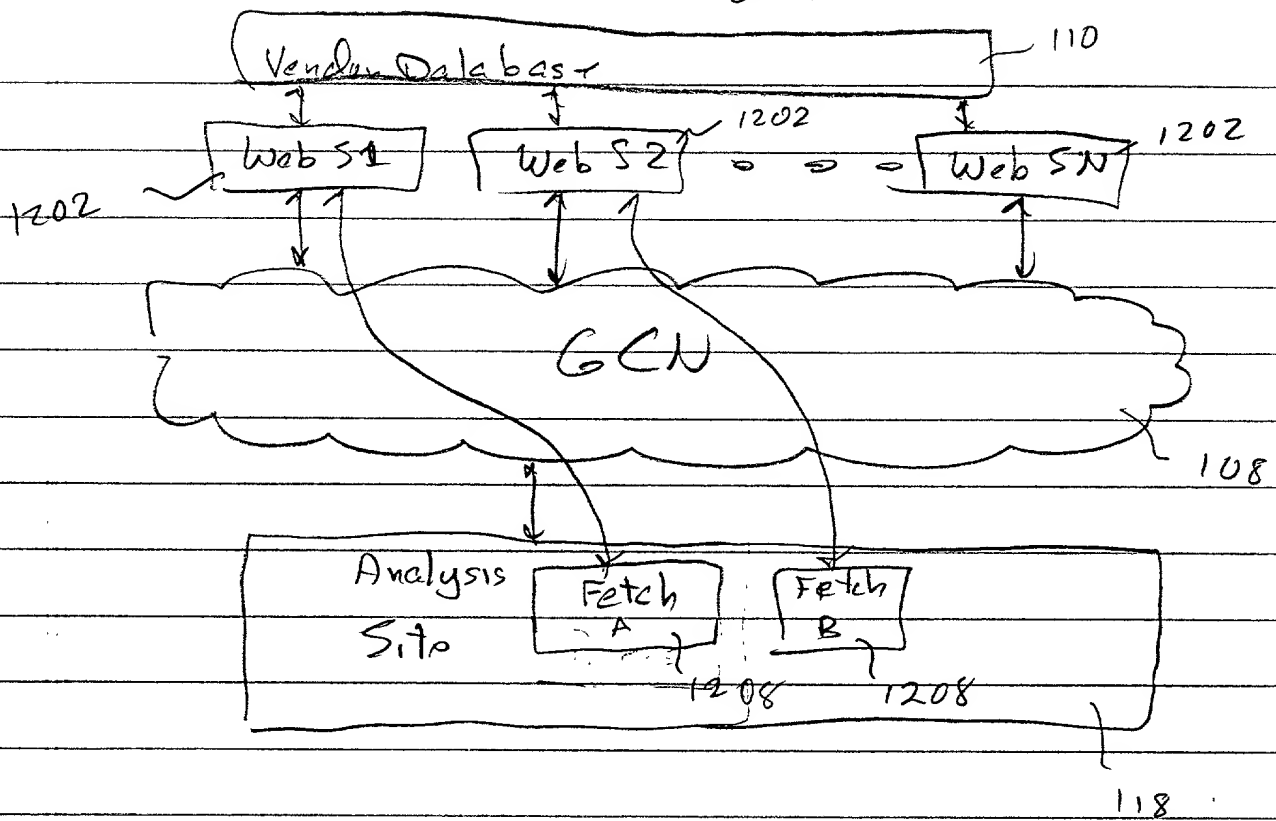 Vendor Database
110
Web S1
Web S2
1202
Web SN
1202
1202
GCN
108
Analysis
Site
Fetch
A
Fetch
B
1208
1208
118